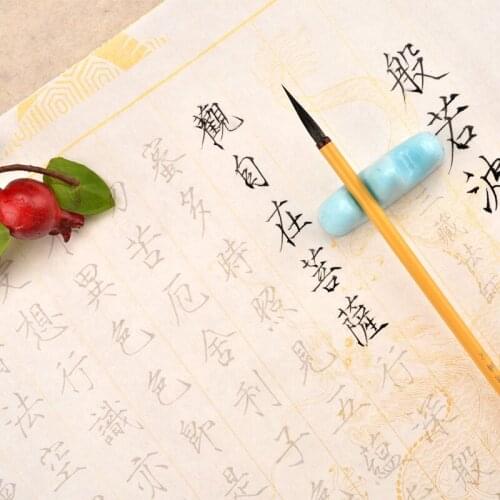 般若波
三藏法
觀自在菩薩行深般
蜜多時照見五蘊
切苦厄舍利子
不異色色即是
受想行識亦
法空